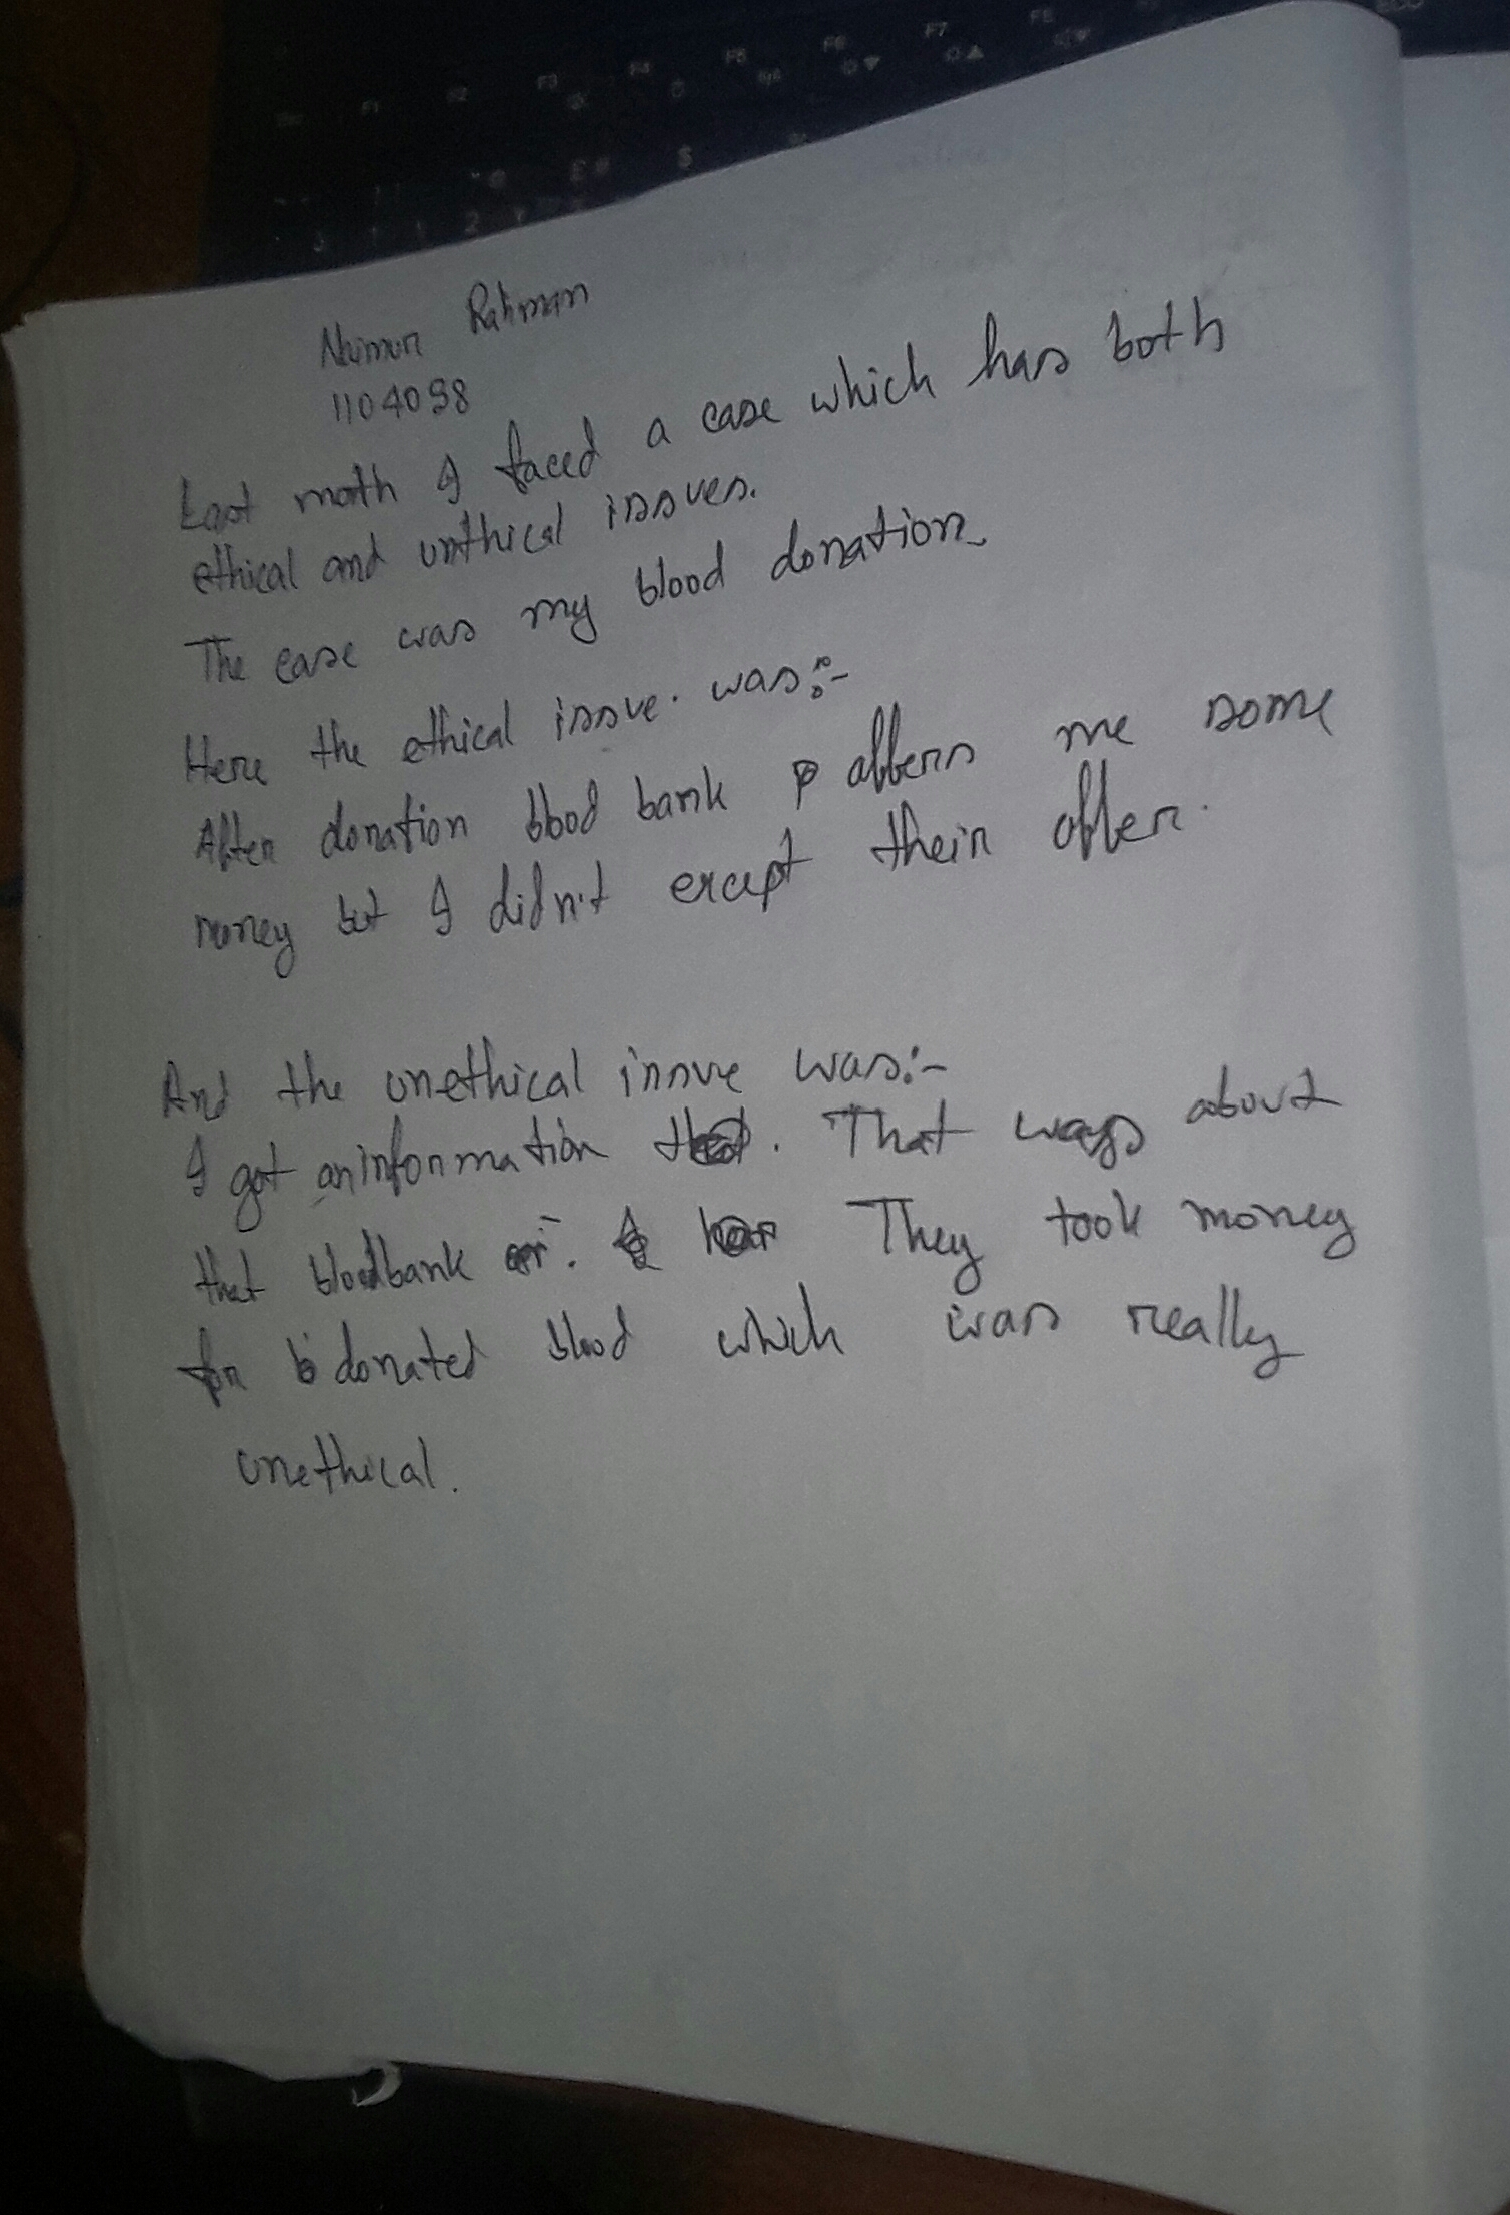 Naimur Rahman
1104098
Last moth I faced a case which has both
ethical and unthical issues.
The case was my blood donation
Here the ethical issue. was:-
After donation blood bank offers me some
money but I didn't except their offer.
And the unethical issue was:-
I got an information. That was about
that bloodbank. They took money
for donated blood which was really
unethical.